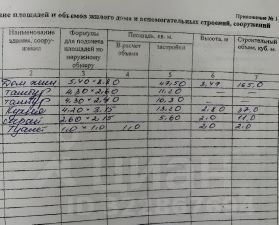 Приложение № 1
ние площадей и объемов жилого дома и вспомогательных строений, сооружений
Наименование здания, соору- жения
Формулы для подсчета площадей по наружному обмеру
Площадь, кв. м.
В расчет объема
застройки
Высота, м
Строительный объем, куб. м.
3 4 5 6 7
тамбур 4.30 × 2.60 11.20 — —
тамбур 4.30 × 2.40 10.30 — —
Кухня 4.20 × 3.15 13.20 2.80 37.0
сарай 2.60 × 2.15 5.60 2.0 11.0
Туалет 1.0 × 1.0 1.0 2.0 2.0